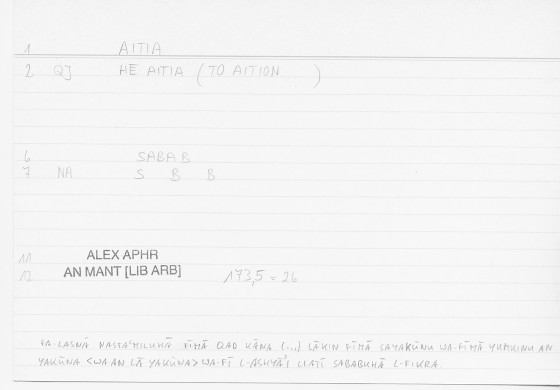 1 AITIA
2 QJ HE AITIA (TO AITION )
6 SABAB
7 NA S B B
11 ALEX APHR
12 AN MANT [LIB ARB] 173,5 = 26
WA-LASNĀ NASTAʿMILUHĀ FĪMĀ QAD KĀNA (...) LĀKIN FĪMĀ SAYAKŪNU WA-FĪMĀ YUMKINU AN
YAKŪNA <WA-AN LĀ YAKŪNA> WA-FĪ L-ASHYĀʾI LLATĪ SABABUHĀ L-FIKRA.